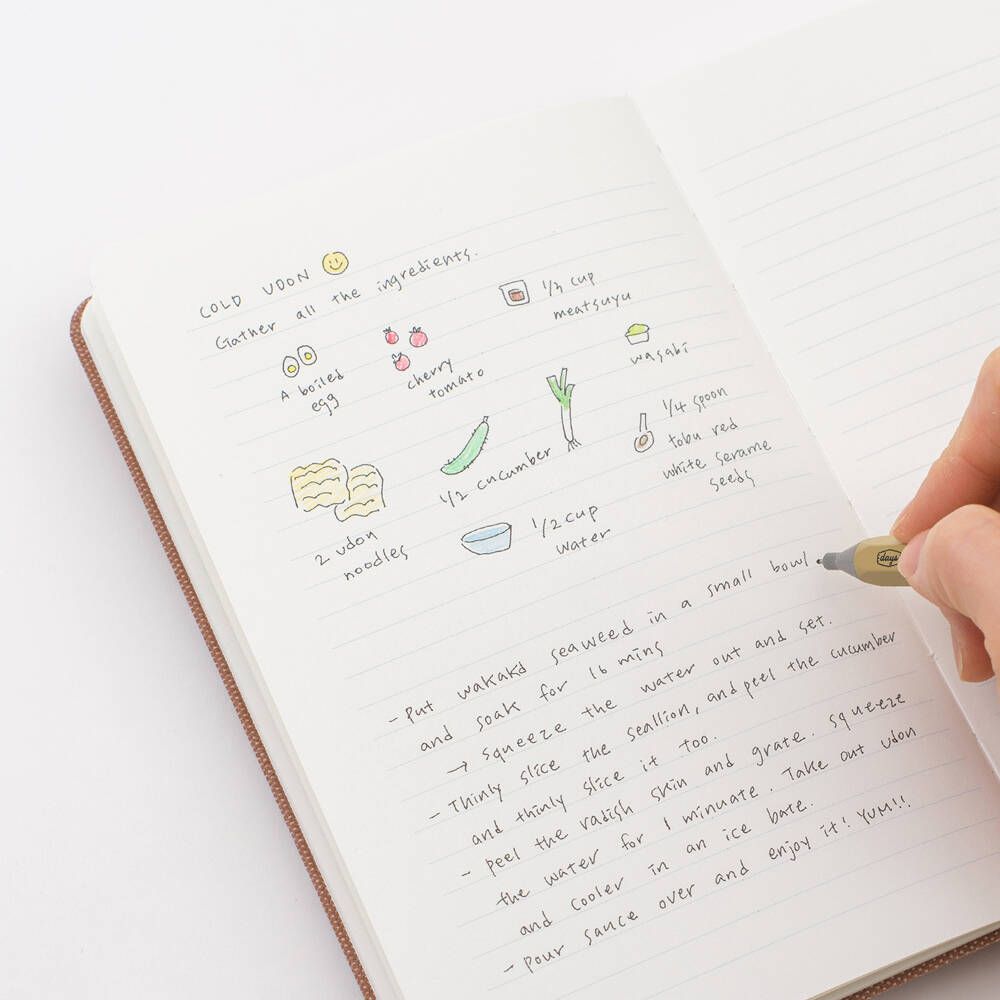 COLD UDON
Gather all the ingredients.
A boiled
egg
cherry
tomato
1/3 cup
meatsuyu
wasabi
2 udon
noodles
1/2 cucumber
1/4 spoon
tobu red
white serame
seeds
1/2 cup
water
- Put wakakd seaweed in a small bowl
and soak for 16 mins
→ squeeze the water out and set.
- Thinly slice the seallion, and peel the cucumber
and thinly slice it too.
- peel the radish skin and grate. squeeze
the water for 1 minuate. Take out udon
and cooler in an ice bate.
- pour sauce over and enjoy it! YUM!!
days